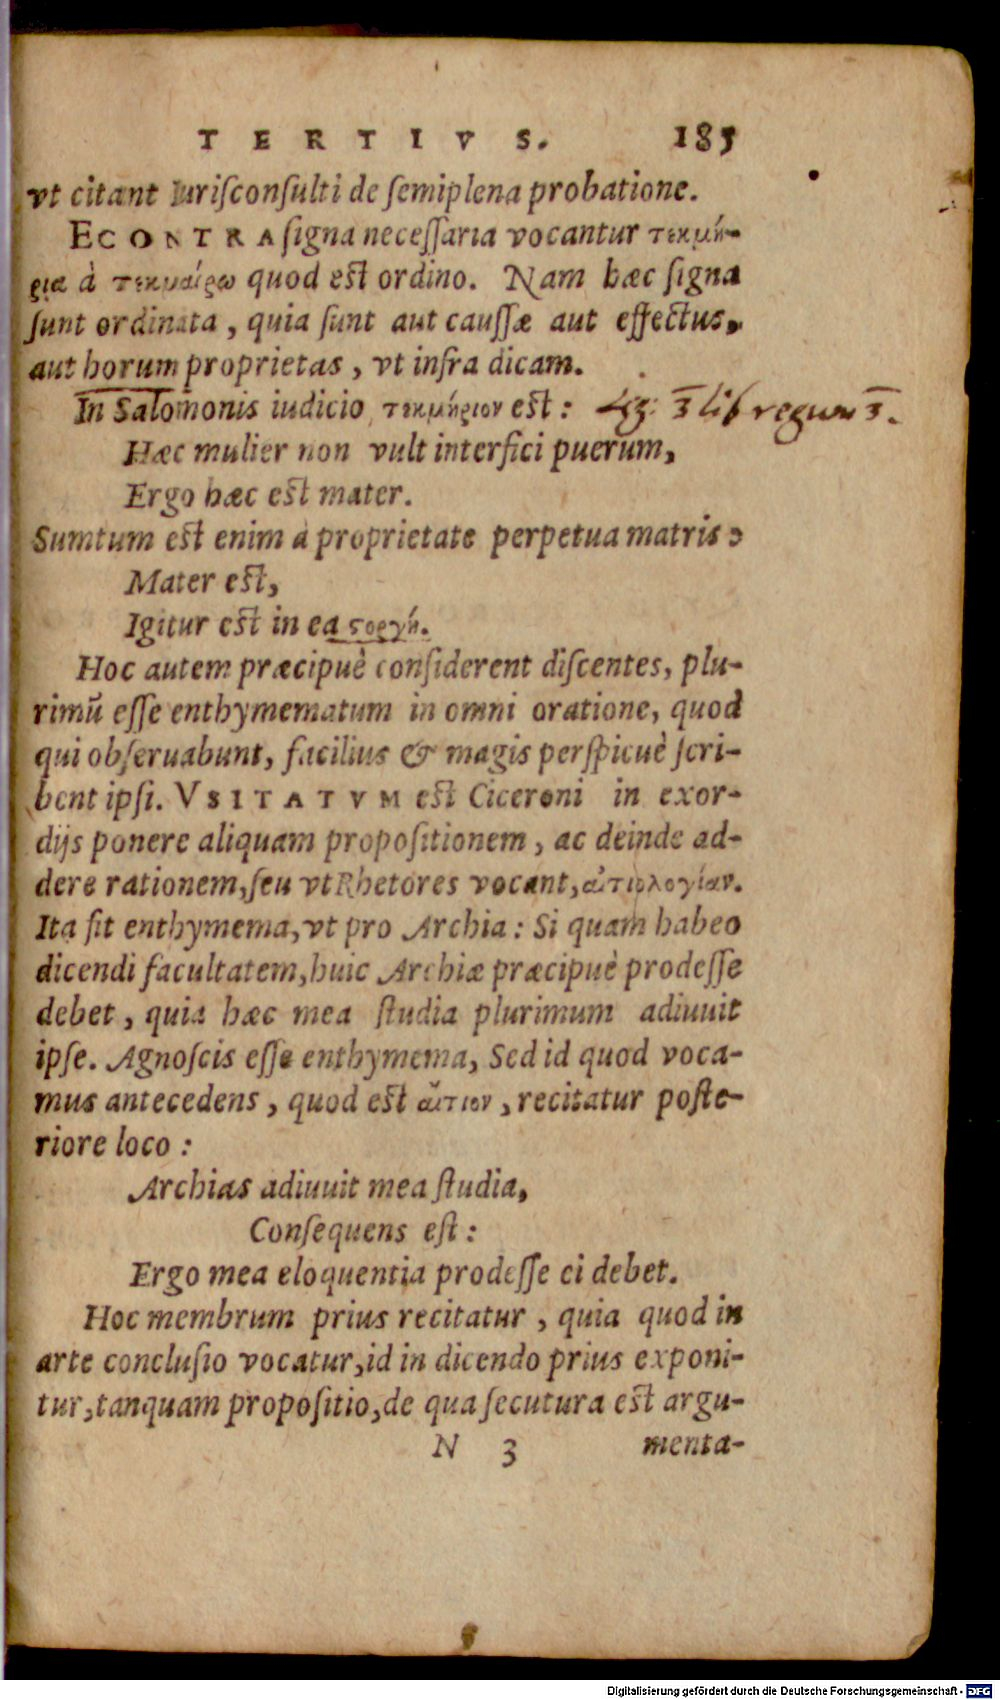 TERTIVS. 185
vt citant Iuriſconſulti de ſemiplena probatione.
ECONTRA ſigna neceſſaria vocantur τεκμή-
ρια à τεκμαίρω quod eſt ordino. Nam hæc ſigna
ſunt ordinata, quia ſunt aut cauſſæ aut effectus,
aut horum proprietas, vt infra dicam.
In Salomonis iudicio τεκμήριον eſt: 3 lib regum 3.
Hæc mulier non vult interfici puerum,
Ergo hæc eſt mater.
Sumtum eſt enim à proprietate perpetua matris:
Mater eſt,
Igitur eſt in ea ϛοργή.
Hoc autem præcipuè conſiderent diſcentes, plu-
rimũ eſſe enthymematum in omni oratione, quod
qui obſeruabunt, facilius & magis perſpicuè ſcri-
bent ipſi. VSITATVM eſt Ciceroni in exor-
dijs ponere aliquam propoſitionem, ac deinde ad-
dere rationem, ſeu vt Rhetores vocant, αἰτιολογίαν.
Ita fit enthymema, vt pro Archia: Si quam habeo
dicendi facultatem, huic Archiæ præcipuè prodeſſe
debet, quia hæc mea ſtudia plurimum adiuuit
ipſe. Agnoſcis eſſe enthymema, Sed id quod voca-
mus antecedens, quod eſt αἴτιον, recitatur poſte-
riore loco:
Archias adiuuit mea ſtudia,
Conſequens eſt:
Ergo mea eloquentia prodeſſe ei debet.
Hoc membrum prius recitatur, quia quod in
arte concluſio vocatur, id in dicendo prius exponi-
tur, tanquam propoſitio, de qua ſecutura eſt argu-
N 3 menta-
Digitalisierung gefördert durch die Deutsche Forschungsgemeinschaft - DFG